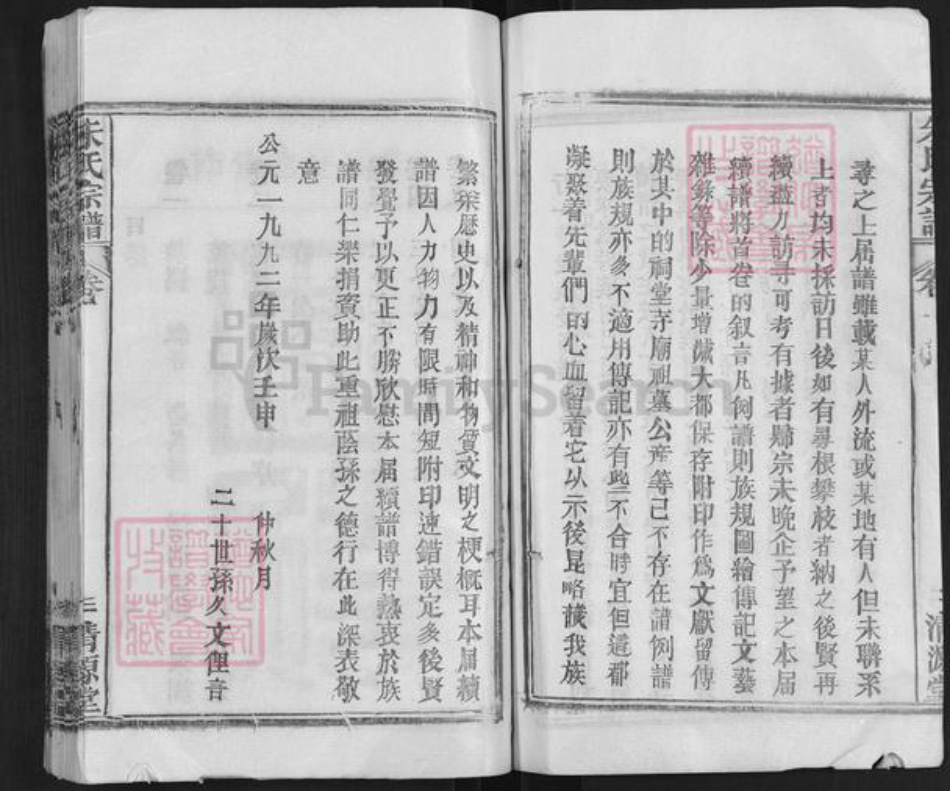 尋之上届譜雖載某人外流或某地有人但未聯系
上者均未採訪日後如有尋根攀枝者納之後賢再
續盡力訪寻可考有據者歸宗未晚企予望之本届
續譜將首卷的叙言凡例譜則族規圖繪傳記文藝
雜錄等除少量增减大都保存附印作爲文獻留傳
於其中的祠堂寺廟祖墓公産等已不存在譜例譜
則族規亦多不適用傳記亦有些不合時宜但這都
凝聚着先輩們的心血留着它以示後昆略識我族
朱氏宗譜
卷
三
清源堂
繁榮歷史以及精神和物質文明之梗概耳本届續
譜因人力物力有限時間短附印速錯誤定多後賢
發覺予以更正不勝欣慰本届續譜博得熱衷於族
譜同仁樂捐資助此重祖蔭孫之德行在此深表敬
意
公元一九九二年歲次壬申 仲秋月
二十世孫久文俚音
朱氏宗譜
卷
三
清源堂
FamilySearch